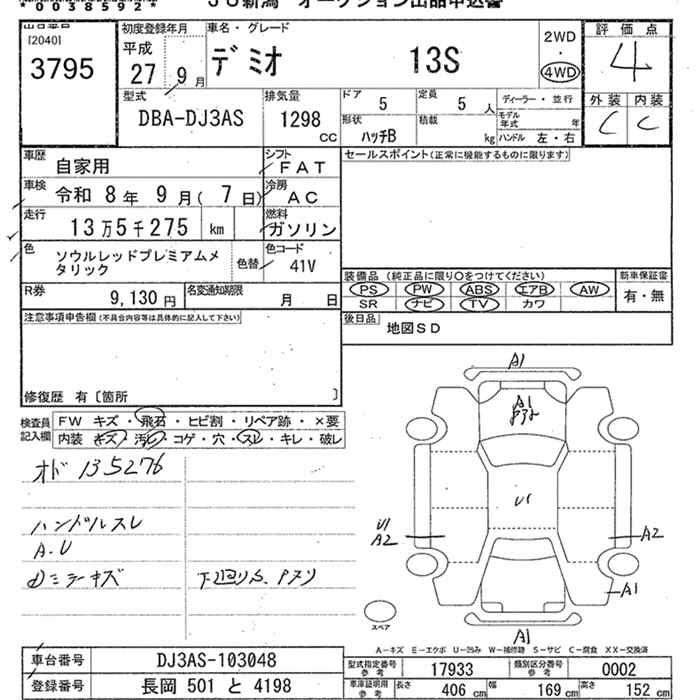 *0038592*
JU新潟 オークション出品申込書
出品番号
[2040]
3795
初度登録年月
平成
27 9月
車名・グレード
デミオ 13S
2WD
・
4WD
評価点
4
外装 内装
C C
型式
DBA-DJ3AS
排気量
1298
CC
ドア 5
定員 5 人
ディーラー・並行
形状 ハッチB
積載 kg
モデル年式 年
ハンドル 左・右
車歴
自家用
シフト
FAT
車検 令和 8年 9月( 7日)
冷房
AC
走行
13万5千275 km
燃料
ガソリン
色
ソウルレッドプレミアムメ
タリック
色替
色コード
41V
R券
9,130円
名変通知期限
月 日
セールスポイント(正常に機能するものに限ります)
装備品 (純正品に限り○をつけてください)
PS PW ABS エアB AW
SR ナビ TV カワ
新車保証書
有・無
後日品
地図SD
注意事項申告欄(不具合内容等は具体的に記入して下さい)
修復歴 有〔箇所 〕
検査員
記入欄
FW キズ・飛石・ヒビ割・リペア跡・×要
内装 キズ・汚レ・コゲ・穴・スレ・キレ・破レ
オド 135276
ハンドルスレ
A.U
ミラーキズ
下廻りS、
A1
A1
U1
U1
A2
A2
A1
A1
スペア
A-キズ E-エクボ U-凹み W-補修跡 S-サビ C-腐食 XX-交換済
車台番号
DJ3AS-103048
登録番号
長岡 501 と 4198
型式指定番号
参考
17933
類別区分番号
参考
0002
車庫証明用
参考
長さ 406 cm
幅 169 cm
高さ 152 cm